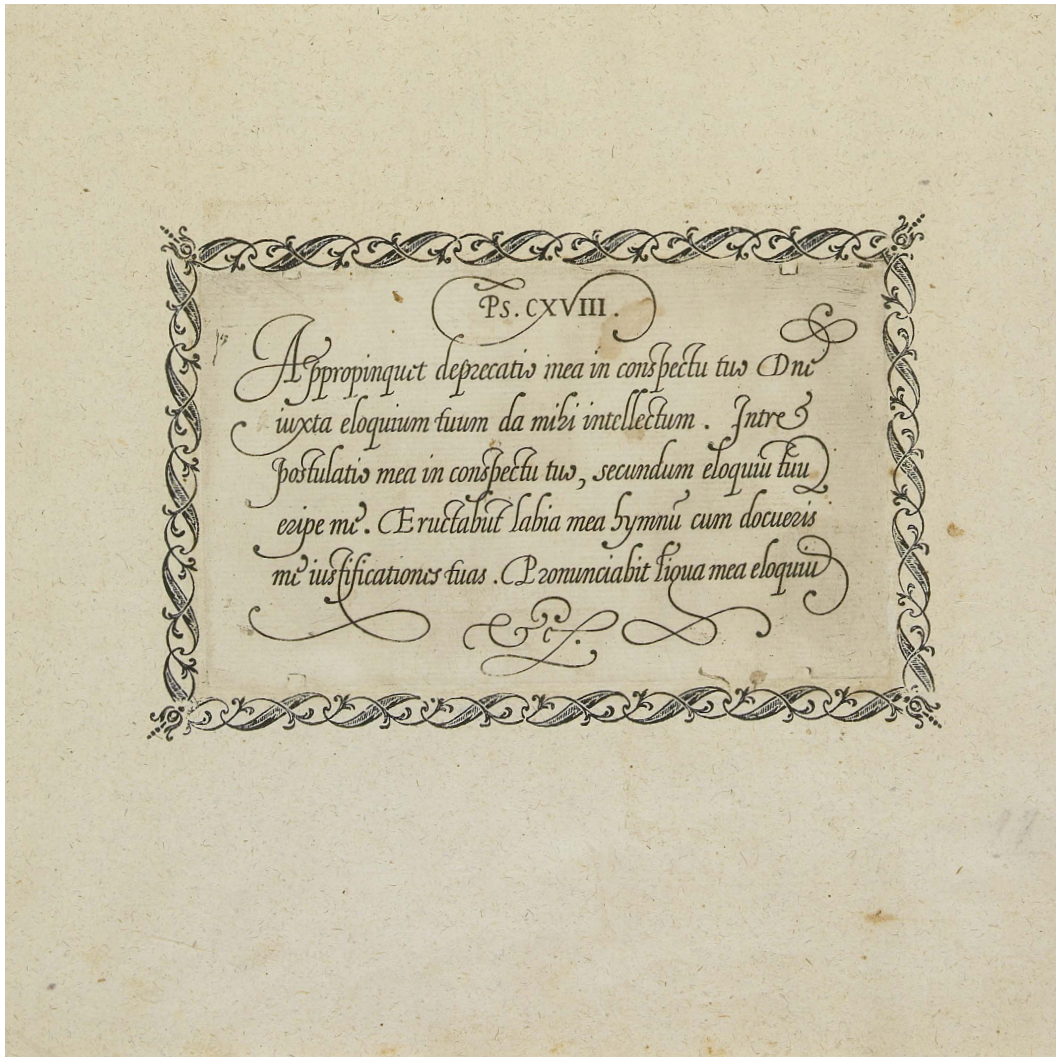 Ps. CXVIII.
Appropinquet deprecatio mea in conspectu tuo Dne
iuxta eloquium tuum da mihi intellectum. Intret
postulatio mea in conspectu tuo, secundum eloquiū tuū
eripe me. Eructabūt labia mea hymnū cum docueris
me iustificationes tuas. Pronunciabit līgua mea eloquiū
&c.